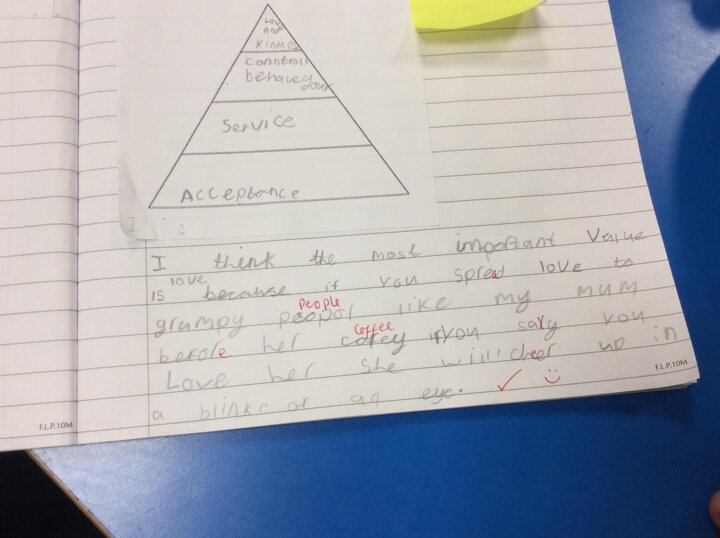 Love
and
kindnes
Conntroll
behaved
your
Service
Acceptance
I think the most important Value
love
is because if you spread love to
people
grumpy peopol like my mum
coffee
before her cofey if you say you
Love her she will cheer up in
a blinkr of an eye. ✓ ☺
F.L.P.10M
F.L.P.10M